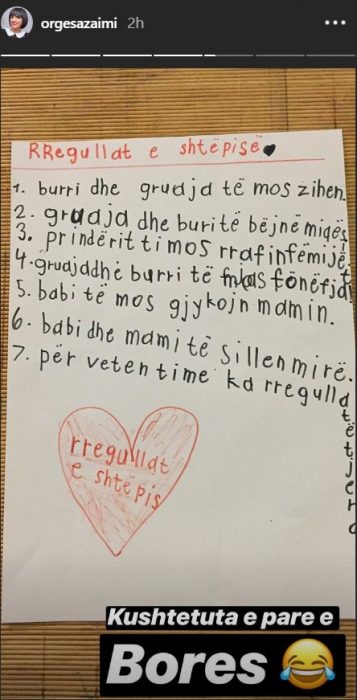 orgesazaimi 2h
RRegullat e shtëpisë
1. burri dhe gruaja të mos zihen.
2. gruaja dhe buri të bëjnë miqës
3. prindërit ti mos rrafin fëmijët
4. gruajddhe burri të flas
5. babi të mos gjykojn mamin.
6. babi dhe mami të sillen mirë.
7. për veten time ka rregulla të tjera
rregullat
e shtëpis
Kushtetuta e pare e
Bores 😂